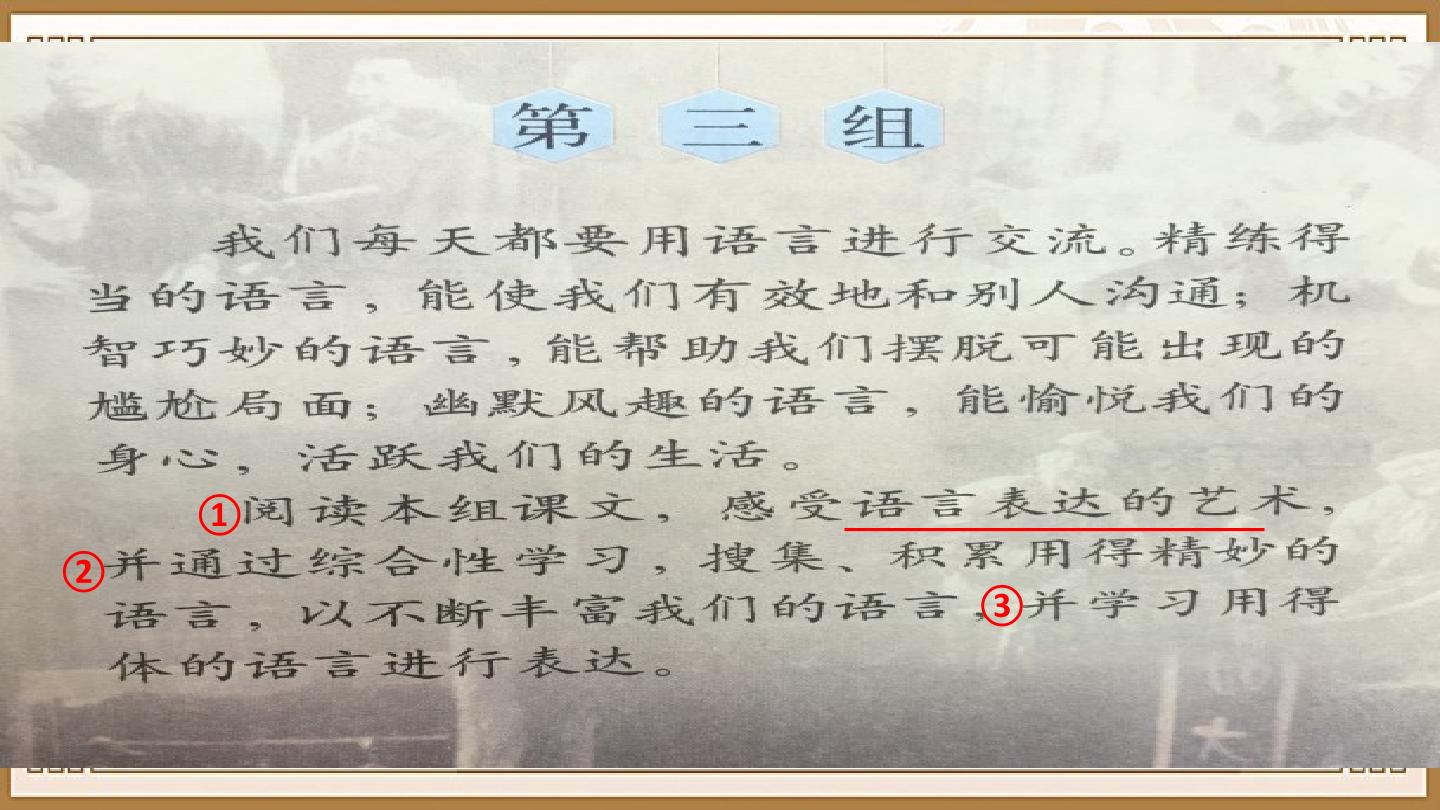 第三组
我们每天都要用语言进行交流。精练得
当的语言，能使我们有效地和别人沟通；机
智巧妙的语言，能帮助我们摆脱可能出现的
尴尬局面；幽默风趣的语言，能愉悦我们的
身心，活跃我们的生活。
①阅读本组课文，感受语言表达的艺术，
②并通过综合性学习，搜集、积累用得精妙的
语言，以不断丰富我们的语言，③并学习用得
体的语言进行表达。
大